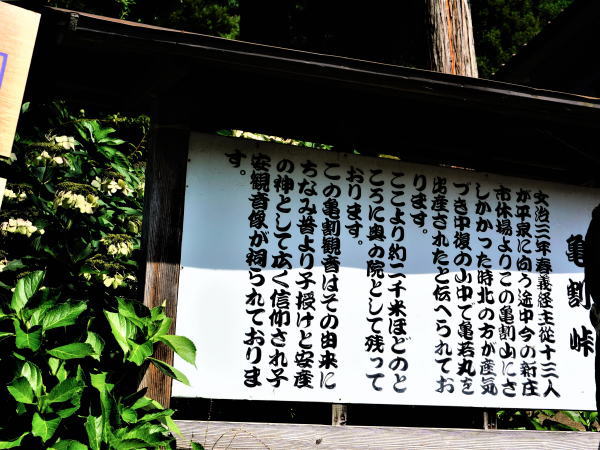 亀割峠
文治三年春義経主從十三人
が平泉に向う途中今の新庄
市休場よりこの亀割山にさ
しかかった時北の方が産気
づき中復の山中で亀若丸を
出産されたと伝へられてお
ります。
ここより約二千米ほどのと
ころに奥の院として残って
おります。
この亀割観音はその由来に
ちなみ昔より子授けと安産
の神として広く信仰され子
安観音像が祠られておりま
す。